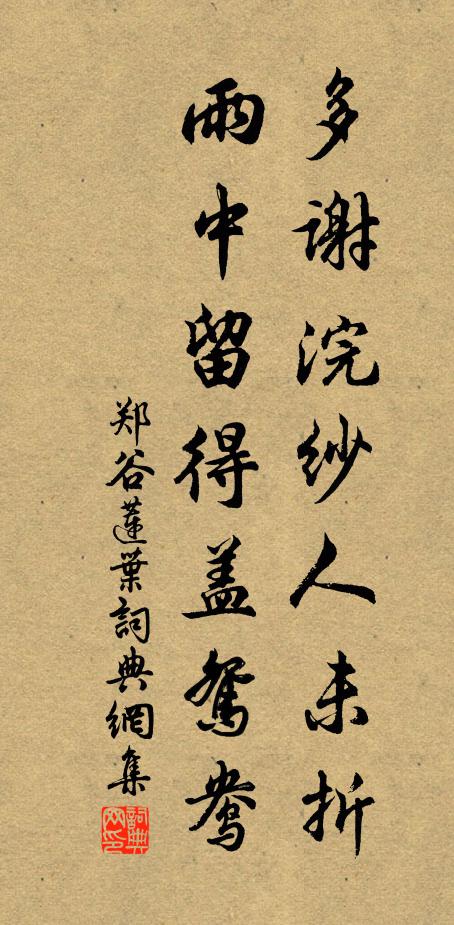 多谢浣纱人未折
雨中留得盖鸳鸯
郑谷蓮葉詞典網集
詞典網印